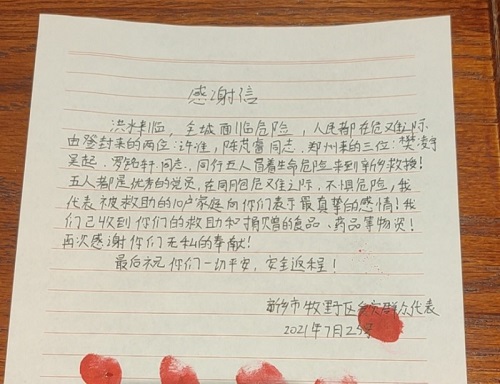 感谢信
洪水来临，全城面临危险，人民都在危难之际
由登封来的两位：许准，陈 同志，郑州来的三位：樊凌宇
吴起、罗铭轩同志，同行五人冒着生命危险来到新乡救援！
五人都是优秀的党员，在同胞危难之际，不惧危险，我
代表被救助的10户家庭向你们表示最真挚的感情！我
们已收到你们的救助和捐赠的食品、药品等物资！
再次感谢你们无私的奉献！
最后祝你们一切平安，安全返程！
新乡市牧野区 群众代表
2021年7月25